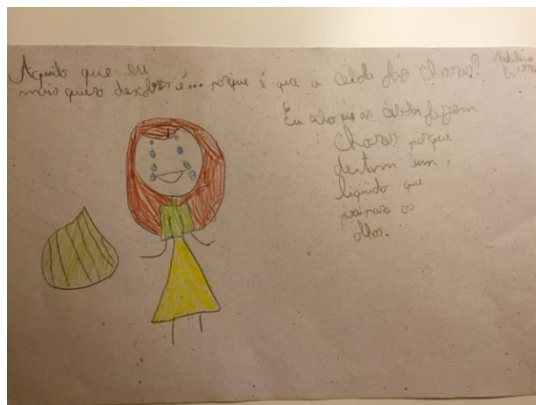 Aquilo que eu
mais quero descobrir é... porque é que a cebola faz chorar?
Eu acho que as cebolas fazem
chorar porque
deitam um
liquido que
vai para os
olhos.